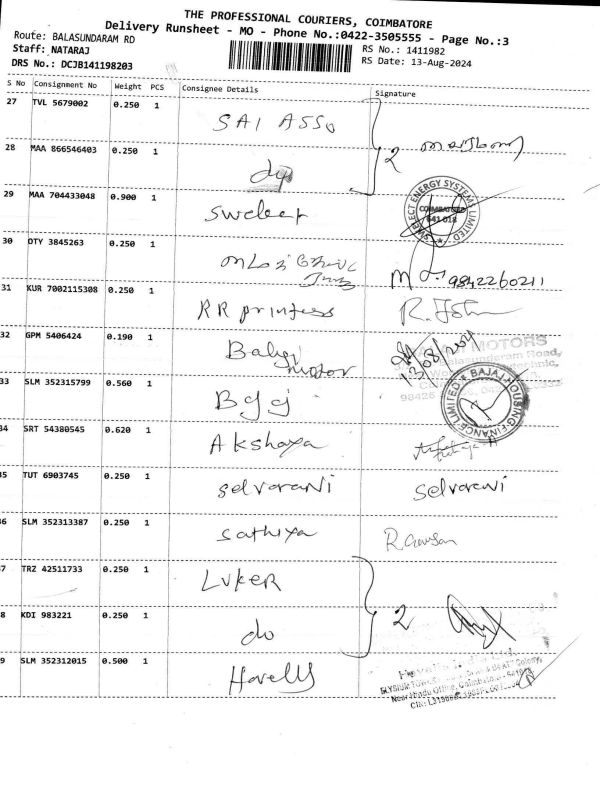 THE PROFESSIONAL COURIERS, COIMBATORE
Delivery Runsheet - MO - Phone No.:0422-3505555 - Page No.:3
Route: BALASUNDARAM RD
RS No.: 1411982
Staff: NATARAJ
RS Date: 13-Aug-2024
DRS No.: DCJB141198203
S No Consignment No Weight PCS Consignee Details Signature
27 TVL 5679002 0.250 1 SAI ASSO
28 MAA 866546403 0.250 1 do 2
29 MAA 704433048 0.900 1 Swelect
SWELECT ENERGY SYSTEMS LIMITED COIMBATORE 641 018
30 OTY 3845263 0.250 1 9842260211
31 KUR 7002115308 0.250 1 RR printers
32 GPM 5406424 0.190 1 Balaji motor 13/08/2024
MOTORS
Balasundaram Road,
33 SLM 352315799 0.560 1 Bajaj
BAJAJ HOUSING FINANCE LIMITED
34 SRT 54380545 0.620 1 Akshaya
5 TUT 6903745 0.250 1 selvarani selvarani
6 SLM 352313387 0.250 1 sathiya
7 TRZ 42511733 0.250 1 LUKER
8 KDI 983221 0.250 1 do 2
9 SLM 352312015 0.500 1 Havells